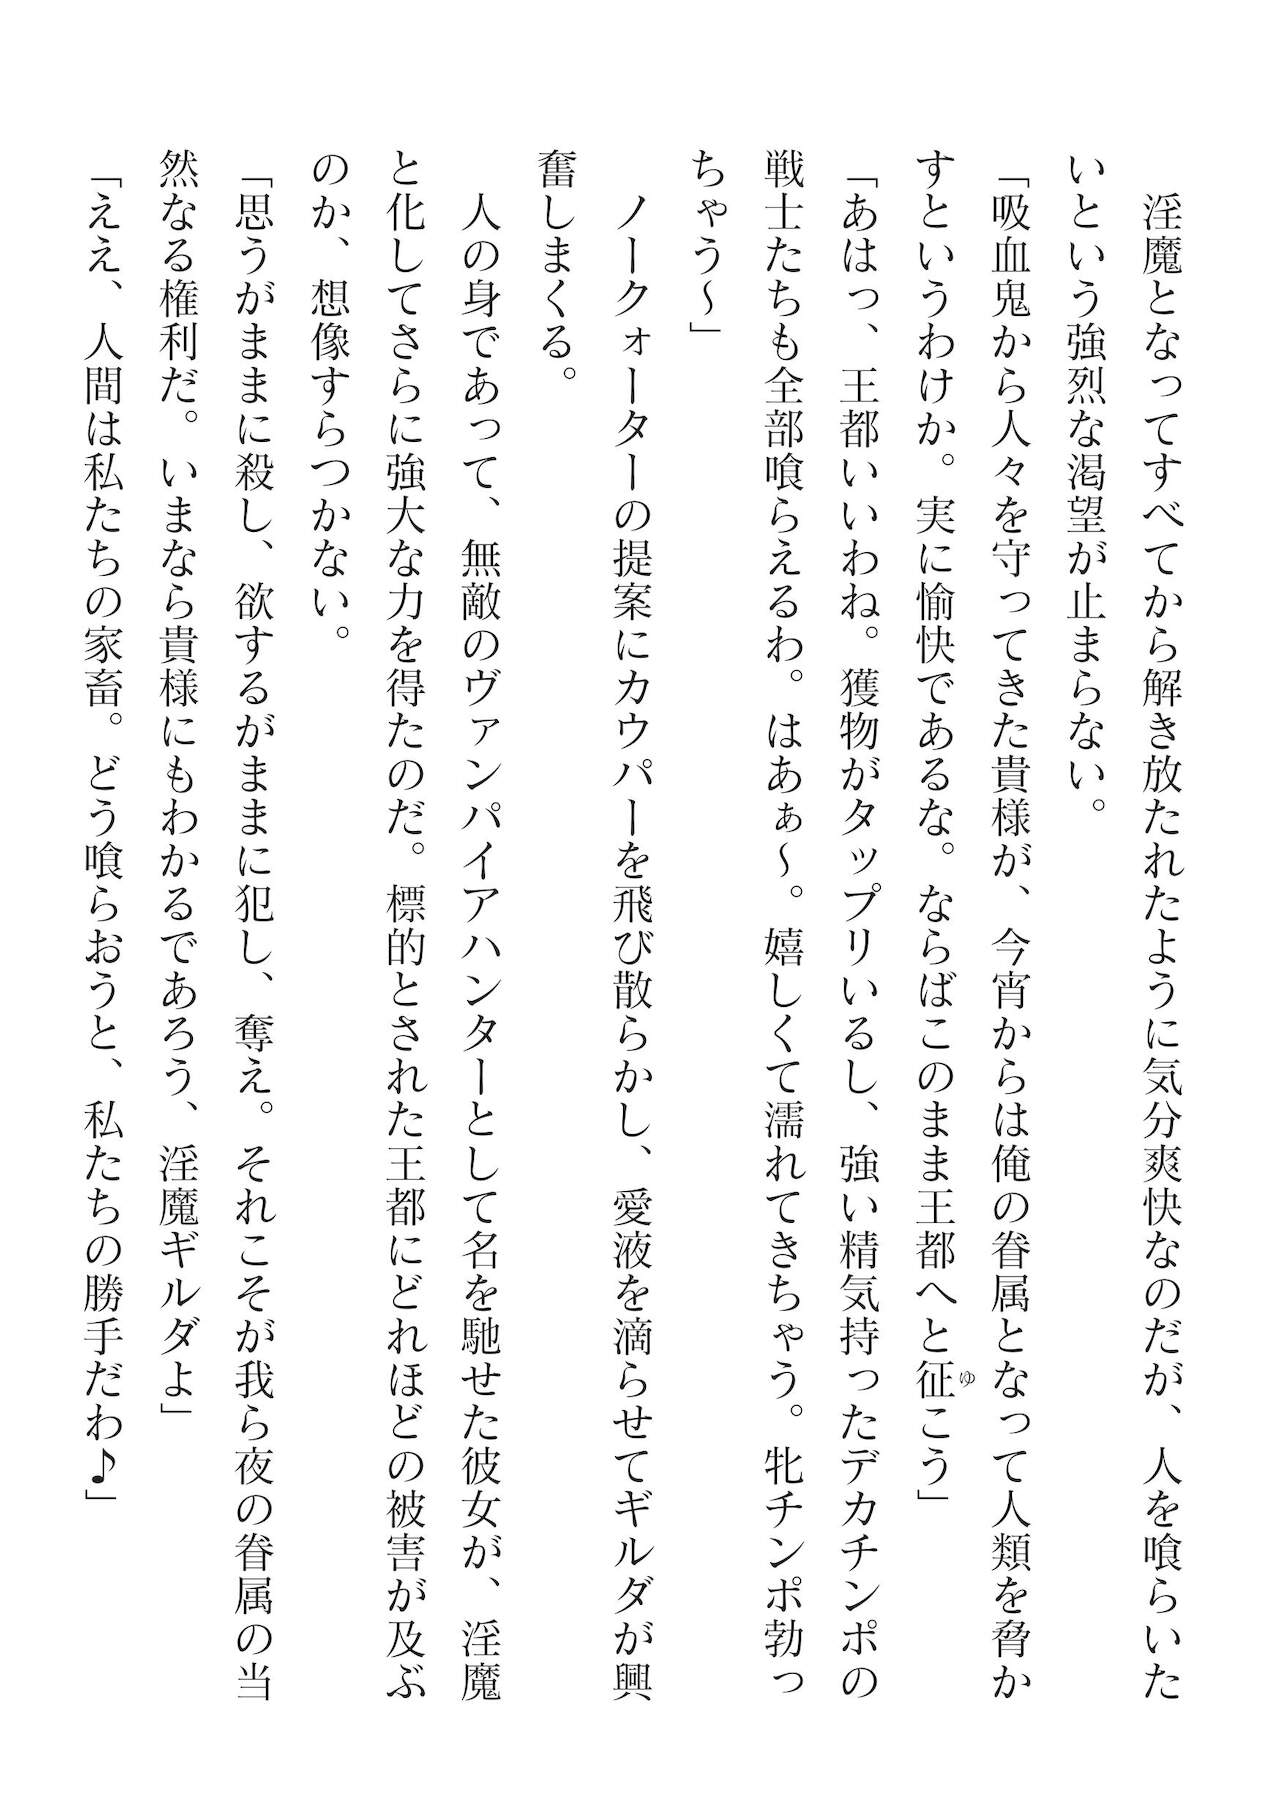 淫魔となってすべてから解き放たれたように気分爽快なのだが、人を喰らいた
いという強烈な渇望が止まらない。
「吸血鬼から人々を守ってきた貴様が、今宵からは俺の眷属となって人類を脅か
すというわけか。実に愉快であるな。ならばこのまま王都へと征こう」
ゆ
「あはっ、王都いいわね。獲物がタップリいるし、強い精気持ったデカチンポの
戦士たちも全部喰らえるわ。はあぁ〜。嬉しくて濡れてきちゃう。牝チンポ勃っ
ちゃう〜」
ノークォーターの提案にカウパーを飛び散らかし、愛液を滴らせてギルダが興
奮しまくる。
人の身であって、無敵のヴァンパイアハンターとして名を馳せた彼女が、淫魔
と化してさらに強大な力を得たのだ。標的とされた王都にどれほどの被害が及ぶ
のか、想像すらつかない。
「思うがままに殺し、欲するがままに犯し、奪え。それこそが我ら夜の眷属の当
然なる権利だ。いまなら貴様にもわかるであろう、淫魔ギルダよ」
「ええ、人間は私たちの家畜。どう喰らおうと、私たちの勝手だわ♪」